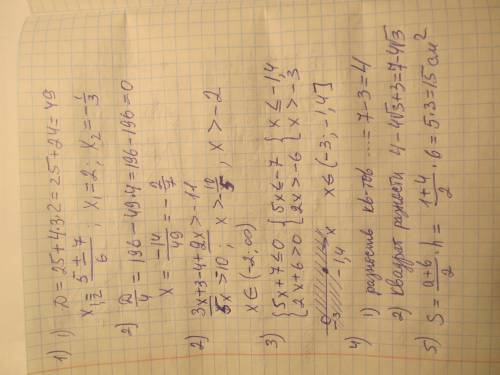 1) 1) D = 25+4·3·2 = 25+24 = 49
x₁,₂ = (5 ± 7)/6 ; x₁ = 2 ; x₂ = -1/3
2) D/4 = 196 - 49·4 = 196 - 196 = 0
x = -14/49 = -2/7
2) 3x+3-4+2x > -11
5x > -10 ; x > -10/5 ; x > -2
x ∈ (-2; ∞)
3) { 5x+7 ≤ 0 { 5x ≤ -7 { x ≤ -1,4
{ 2x+6 > 0 { 2x > -6 { x > -3
-3 -1,4 x x ∈ (-3; -1,4]
4) 1) разность кв-тов ... = 7-3 = 4
2) квадрат разности 4-4√3+3 = 7-4√3
5) S = (a+b)/2 · h = (1+4)/2 · 6 = 5·3 = 15 см²